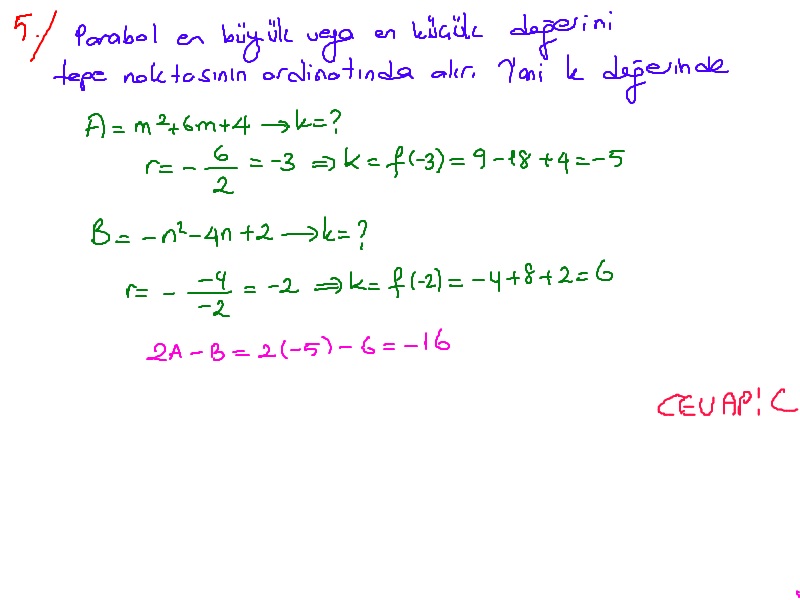 5./ Parabol en büyük veya en küçük değerini
tepe noktasının ordinatında alır. Yani k değerinde
A = m²+6m+4 → k=?
r = - 6/2 = -3 ⇒ k = f(-3) = 9-18+4 = -5
B = -n²-4n+2 → k=?
r = - -4/-2 = -2 ⇒ k = f(-2) = -4+8+2 = 6
2A - B = 2(-5) - 6 = -16
CEVAP: C